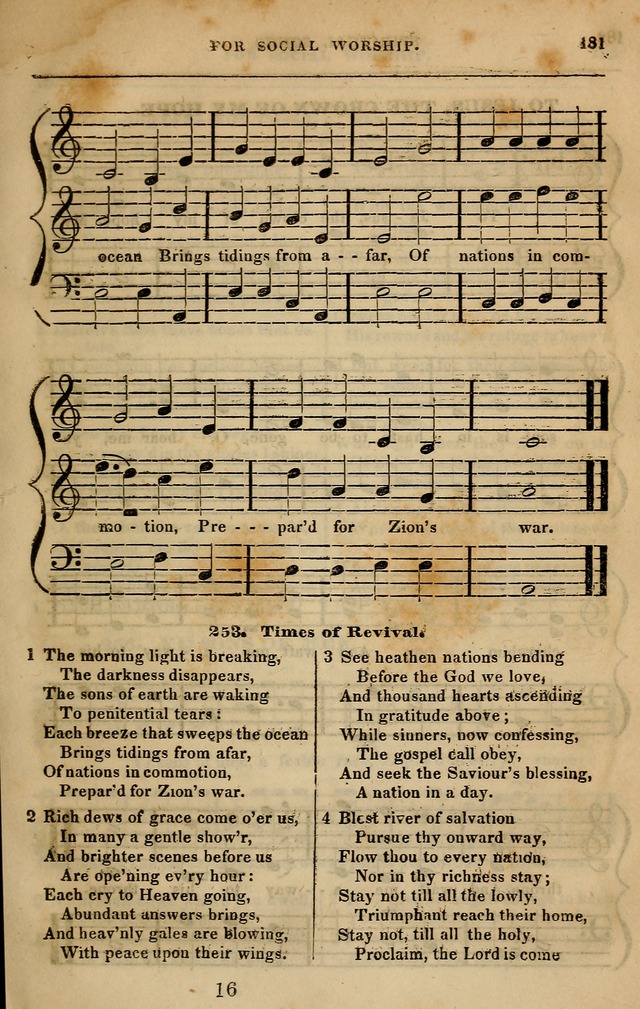 FOR SOCIAL WORSHIP. 181
ocean Brings tidings from a - - far, Of nations in com-
mo - tion, Pre - - - par'd for Zion's war.
253. Times of Revival.
1 The morning light is breaking,
The darkness disappears,
The sons of earth are waking
To penitential tears :
Each breeze that sweeps the ocean
Brings tidings from afar,
Of nations in commotion,
Prepar'd for Zion's war.
2 Rich dews of grace come o'er us,
In many a gentle show'r,
And brighter scenes before us
Are ope'ning ev'ry hour :
Each cry to Heaven going,
Abundant answers brings,
And heav'nly gales are blowing,
With peace upon their wings.
3 See heathen nations bending
Before the God we love,
And thousand hearts ascending
In gratitude above ;
While sinners, now confessing,
The gospel call obey,
And seek the Saviour's blessing,
A nation in a day.
4 Blest river of salvation
Pursue thy onward way,
Flow thou to every nation,
Nor in thy richness stay ;
Stay not till all the lowly,
Triumphant reach their home,
Stay not, till all the holy,
Proclaim, the Lord is come
16